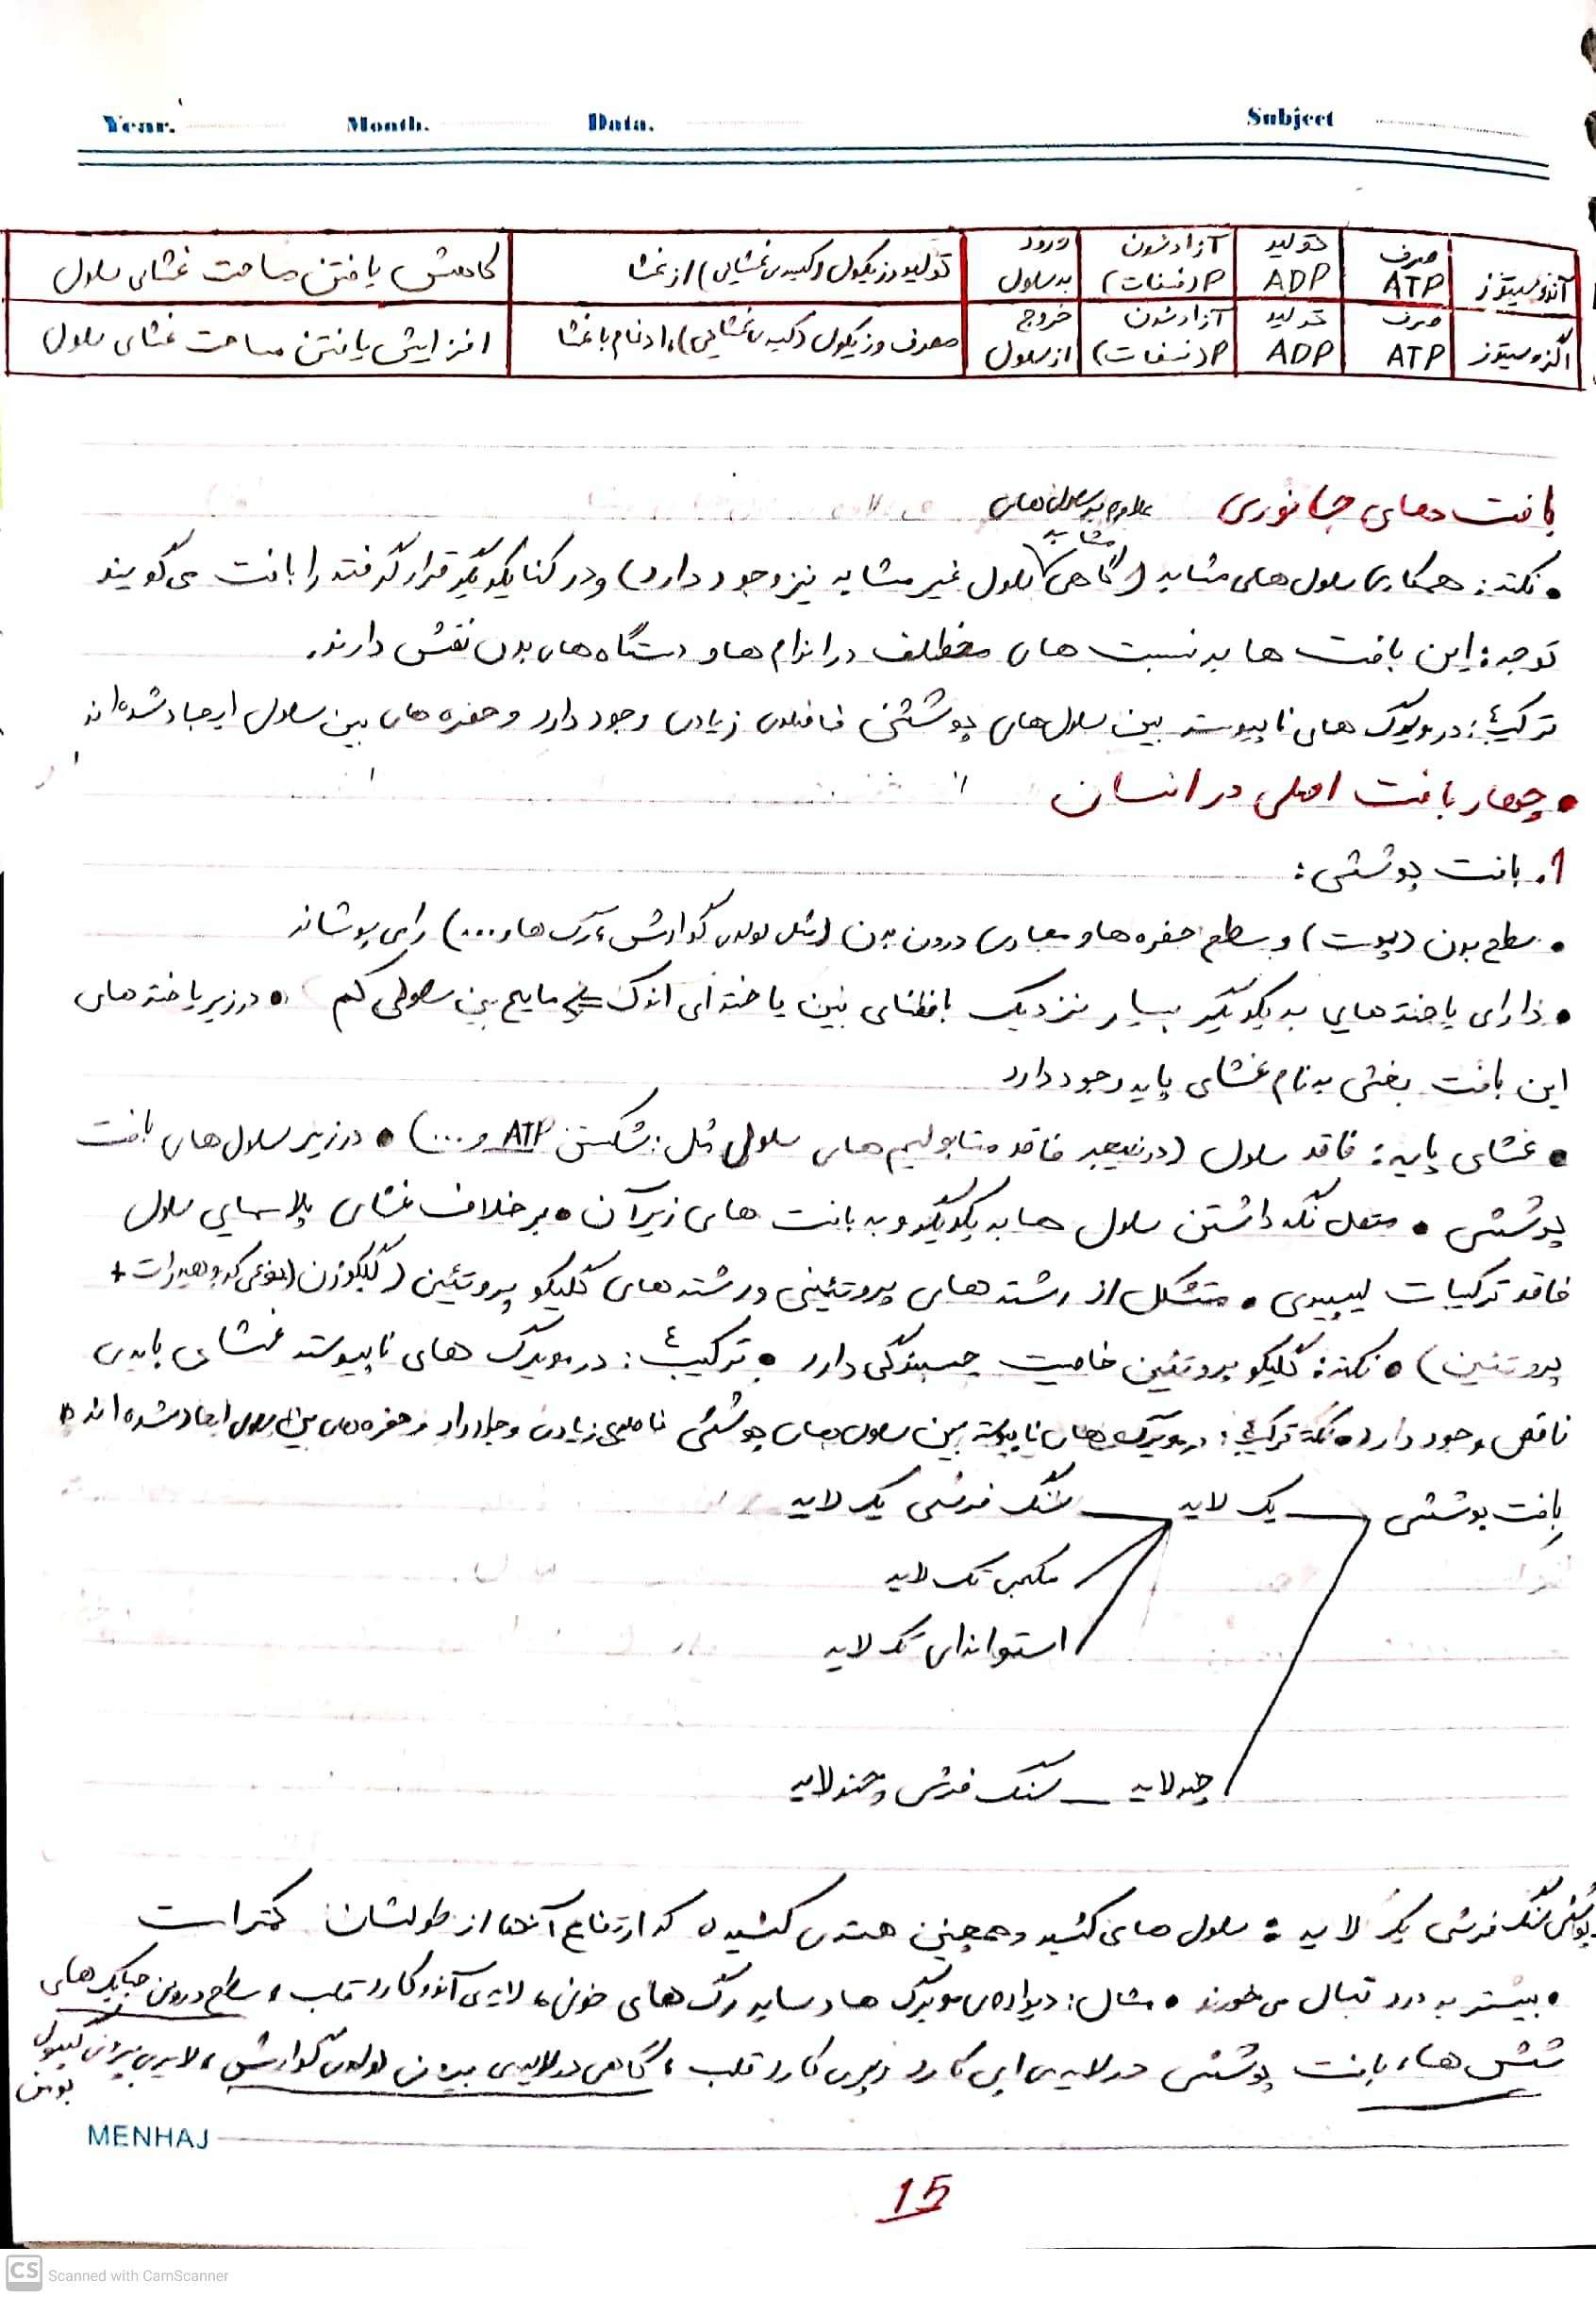 Year. Month. Data. Subject
آندوسیتوز | صرف ATP | تولید ADP | آزاد شدن P (فسفات) | ورود به سلول | تولید وزیکول (کیسه‌ی غشایی) از غشا | کاهش یافتن مساحت غشای سلول
اگزوسیتوز | صرف ATP | تولید ADP | آزاد شدن P (فسفات) | خروج از سلول | مصرف وزیکول (کیسه‌ی غشایی)، ادغام با غشا | افزایش یافتن مساحت غشای سلول
بافت های جانوری
علاوه بر سلول های مشابه
• نکته: همکاری سلول های مشابه (گاهی سلول غیر مشابه نیز وجود دارد) و در کنار یکدیگر قرار گرفته را بافت می گویند
توجه: این بافت ها به نسبت های مختلف در اندام ها و دستگاه های بدن نقش دارند.
ترکیب: در مویرگ های ناپیوسته بین سلول های پوششی فاصله‌ی زیادی وجود دارد و حفره های بین سلولی ایجاد شده اند
• چهار بافت اصلی در انسان
1. بافت پوششی:
• سطح بدن (پوست) و سطح حفره ها و مجاری درون بدن (مثل لوله‌ی گوارش، رگ ها و ...) را می پوشاند
• دارای یاخته هایی به یکدیگر بسیار نزدیک با فضای بین یاخته ای اندک ⇐ مایع بین سلولی کم • در زیر یاخته های
این بافت بخشی به نام غشای پایه وجود دارد
• غشای پایه: فاقد سلول (در نتیجه فاقد متابولیسم های سلولی مثل: شکستن ATP و ...) • در زیر سلول های بافت
پوششی • متصل نگه داشتن سلول ها به یکدیگر و به بافت های زیر آن • بر خلاف غشای پلاسمایی سلول
فاقد ترکیبات لیپیدی • متشکل از رشته های پروتئینی و رشته های گلیکو پروتئین (گلیکوژن (نوعی کربوهیدرات +
پروتئین) • نکته: گلیکو پروتئین خاصیت چسبندگی دارد • ترکیب: در مویرگ های ناپیوسته غشای پایه‌ی
ناقص وجود دارد • نکته ترکیب: در مویرگ های ناپیوسته بین سلول های پوششی فاصله‌ی زیادی وجود دارد و حفره های بین سلولی ایجاد شده اند
بافت پوششی — یک لایه — سنگ فرشی یک لایه
مکعبی تک لایه
استوانه ای تک لایه
چند لایه — سنگ فرشی چند لایه
پوششی سنگ فرشی یک لایه: سلول های کشیده و همچنین هسته‌ی کشیده که ارتفاع آنها از طولشان کمتر است
• بیشتر به درد تبادل می خورند • مثال: دیواره‌ی مویرگ ها و سایر رگ های خونی، لایه‌ی آندوکارد قلب، سطح درونی حبابک های
شش ها، بافت پوششی در لایه‌ی اپی کارد و پری کارد قلب، گاهی در لایه‌ی بیرونی لوله‌ی گوارش، لایه‌ی بیرونی کپسول بومن
MENHAJ
15
CS Scanned with CamScanner